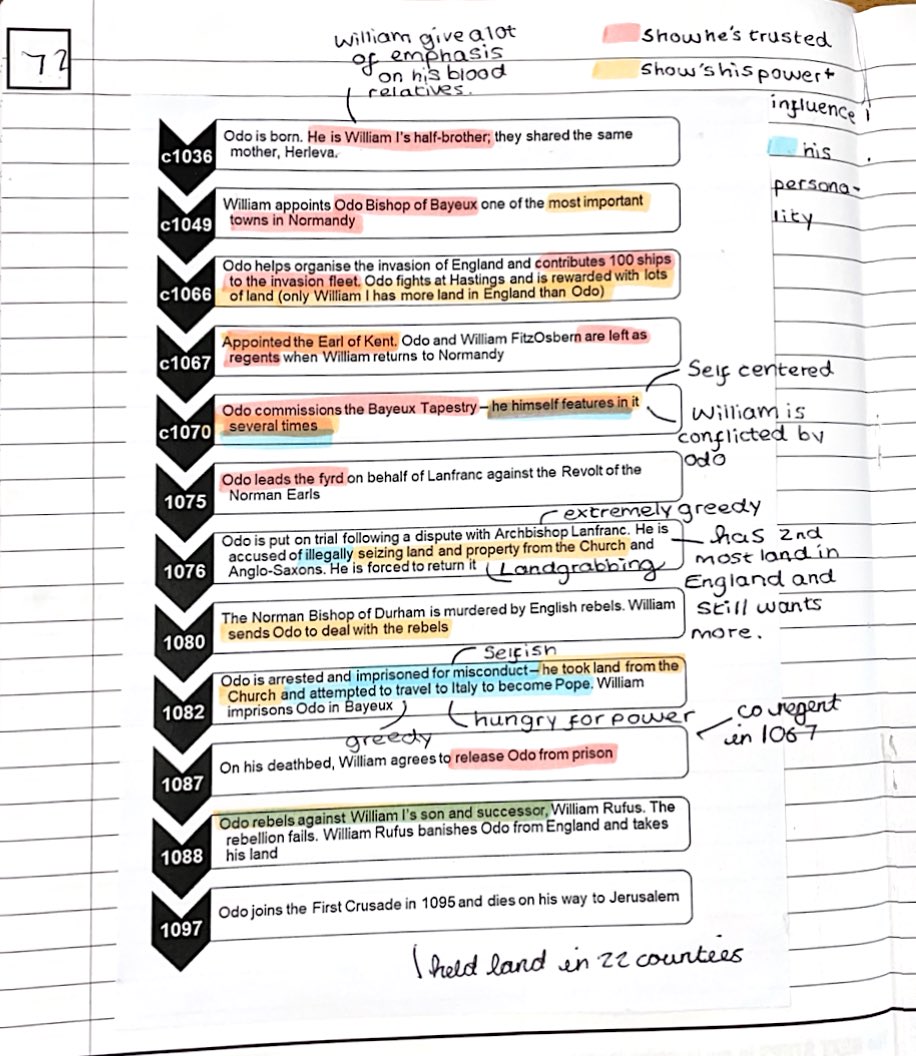 72
William give a lot
of emphasis
on his blood
relatives.
Show he's trusted
Show's his power +
influence
his
persona-
lity
c1036
Odo is born. He is William I's half-brother; they shared the same
mother, Herleva.
c1049
William appoints Odo Bishop of Bayeux one of the most important
towns in Normandy
c1066
Odo helps organise the invasion of England and contributes 100 ships
to the invasion fleet. Odo fights at Hastings and is rewarded with lots
of land (only William I has more land in England than Odo)
c1067
Appointed the Earl of Kent. Odo and William FitzOsbern are left as
regents when William returns to Normandy
Self centered
c1070
Odo commissions the Bayeux Tapestry – he himself features in it
several times
William is
conflicted by
Odo
1075
Odo leads the fyrd on behalf of Lanfranc against the Revolt of the
Norman Earls
extremely greedy
1076
Odo is put on trial following a dispute with Archbishop Lanfranc. He is
accused of illegally seizing land and property from the Church and
Anglo-Saxons. He is forced to return it
Landgrabbing
has 2nd
most land in
England and
still wants
more.
1080
The Norman Bishop of Durham is murdered by English rebels. William
sends Odo to deal with the rebels
Selfish
1082
Odo is arrested and imprisoned for misconduct– he took land from the
Church and attempted to travel to Italy to become Pope. William
imprisons Odo in Bayeux
hungry for power
greedy
co regent
in 1067
1087
On his deathbed, William agrees to release Odo from prison
1088
Odo rebels against William I's son and successor, William Rufus. The
rebellion fails. William Rufus banishes Odo from England and takes
his land
1097
Odo joins the First Crusade in 1095 and dies on his way to Jerusalem
held land in 22 counties